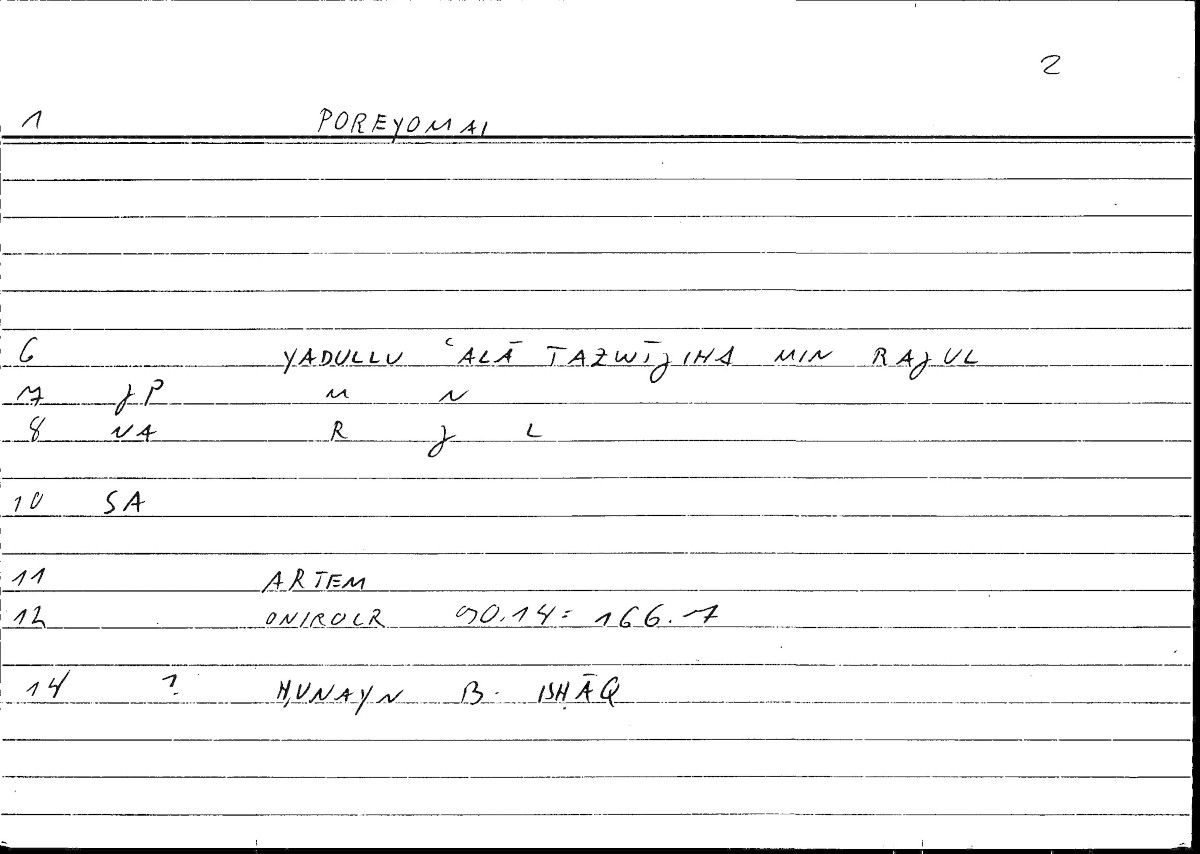 2
1 POREYOMAI
6 YADULLU ʿALĀ TAZWĪJIHA MIN RAJUL
7 JP M N
8 NA R J L
10 SA
11 ARTEM
12 ONIROCR 90.14 = 166.7
14 ? ḤUNAYN B. ISḤĀQ